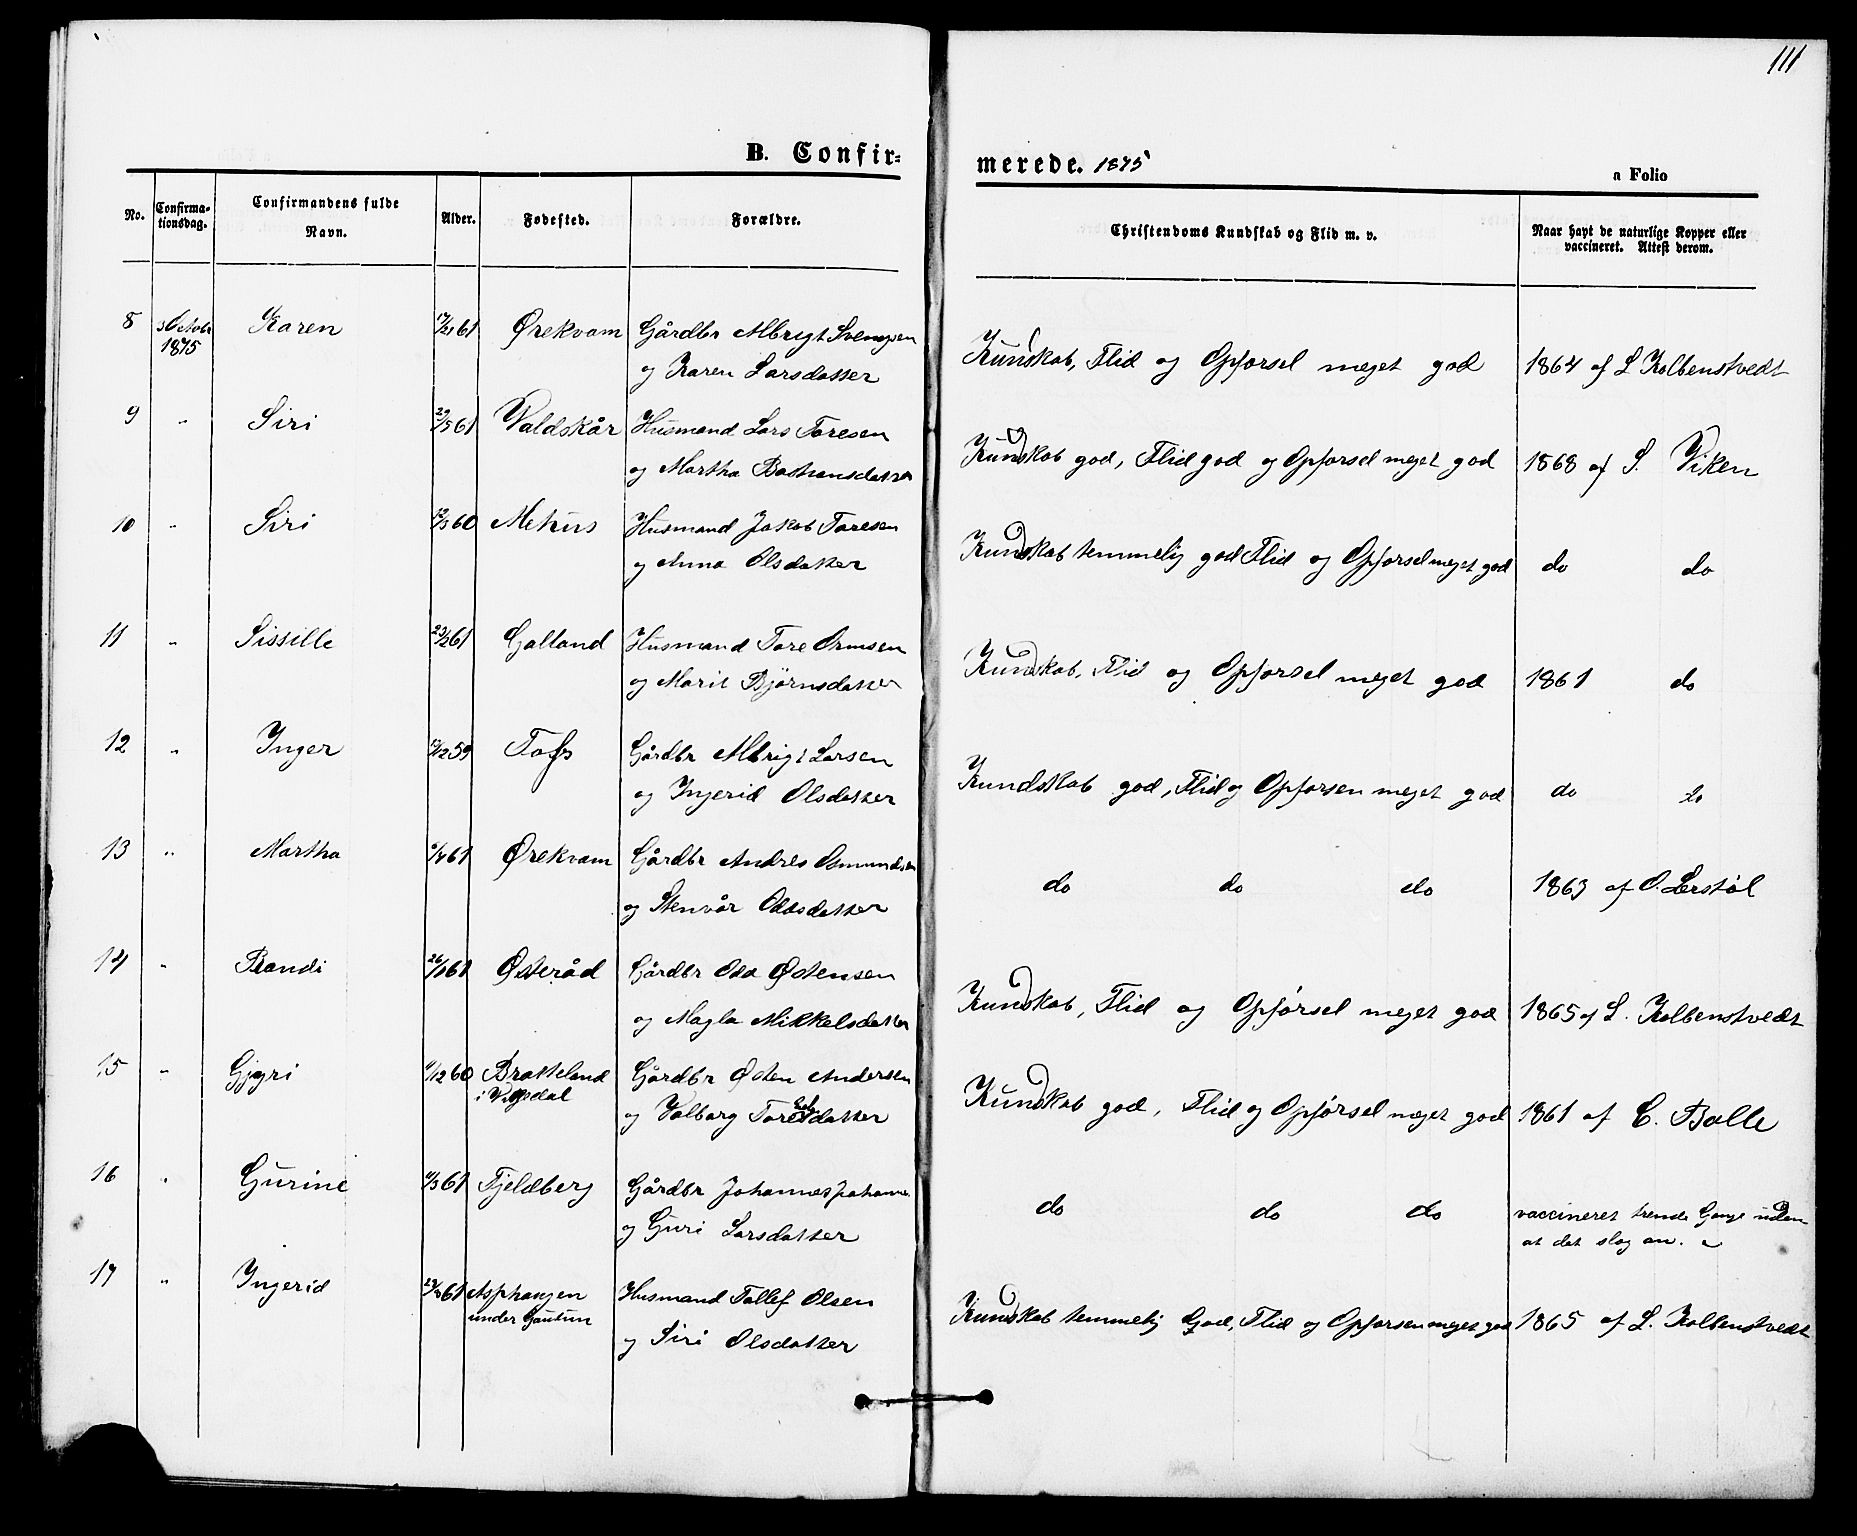 111
B. Confir=
merede. 1875
a Folio
No.
Confirma-
tionsdag.
Confirmandens fulde
Navn.
Alder.
Fødested.
Forældre.
Christendoms Kundskab og Flid m. v.
Naar havt de naturlige Kopper eller
vaccineret. Attest derom.
8 3 Octobr Karen 61 Ørekvam Gårdbr Albrigt Svensen
1875 og Karen Larsdatter
Kundskab, Flid og Opførsel meget god 1864 af L Kolbenstvedt
9 " Siri 29/5 61 Valdskår Husmand Lars Toresen
og Martha Bastiansdatter
Kundskab god, Flid god og Opførsel meget god 1868 af S. Viken
10 " Siri 60 Mehus Husmand Jakob Toresen
og Anna Olsdatter
Kundskab temmelig god Flid og Opførsel meget god do do
11 " Sissille 23/2 61 Galland Husmand Tore Ormsen
og Marit Bjørnsdatter
Kundskab, Flid og Opførsel meget god 1861 do
12 " Inger 59 Tofs Gårdbr Albrigt Larsen
og Ingerid Olsdatter
Kundskab god, Flid og Opførsen meget god do do
13 " Martha 61 Ørekvam Gårdbr Andres Osmundsen
og Stenvår Oddsdatter
do do do 1863 af O. Lerstøl
14 " Randi 61 Østeråd Gårdbr Odd Østensen
og Magla Mikkelsdatter
Kundskab, Flid og Opførsel meget god 1865 af L. Kolbenstvedt
15 " Gjyri 60 Bratteland Gårdbr Østen Andersen
i Vigsdal og Valborg Toresdatter
Kundskab god, Flid og Opførsel meget god 1861 af C. Balle
16 " Gurine 61 Fjeldberg Gårdbr Johannes
og Guri Larsdatter
do do do vaccineret trende Gange uden
at det slog an.
17 " Ingerid 61 Asphaugen Husmand Tallef Olsen
under Gautun og Siri Olsdatter
Kundskab temmelig God, Flid og Opførsen meget god 1865 af L. Kolbenstvedt